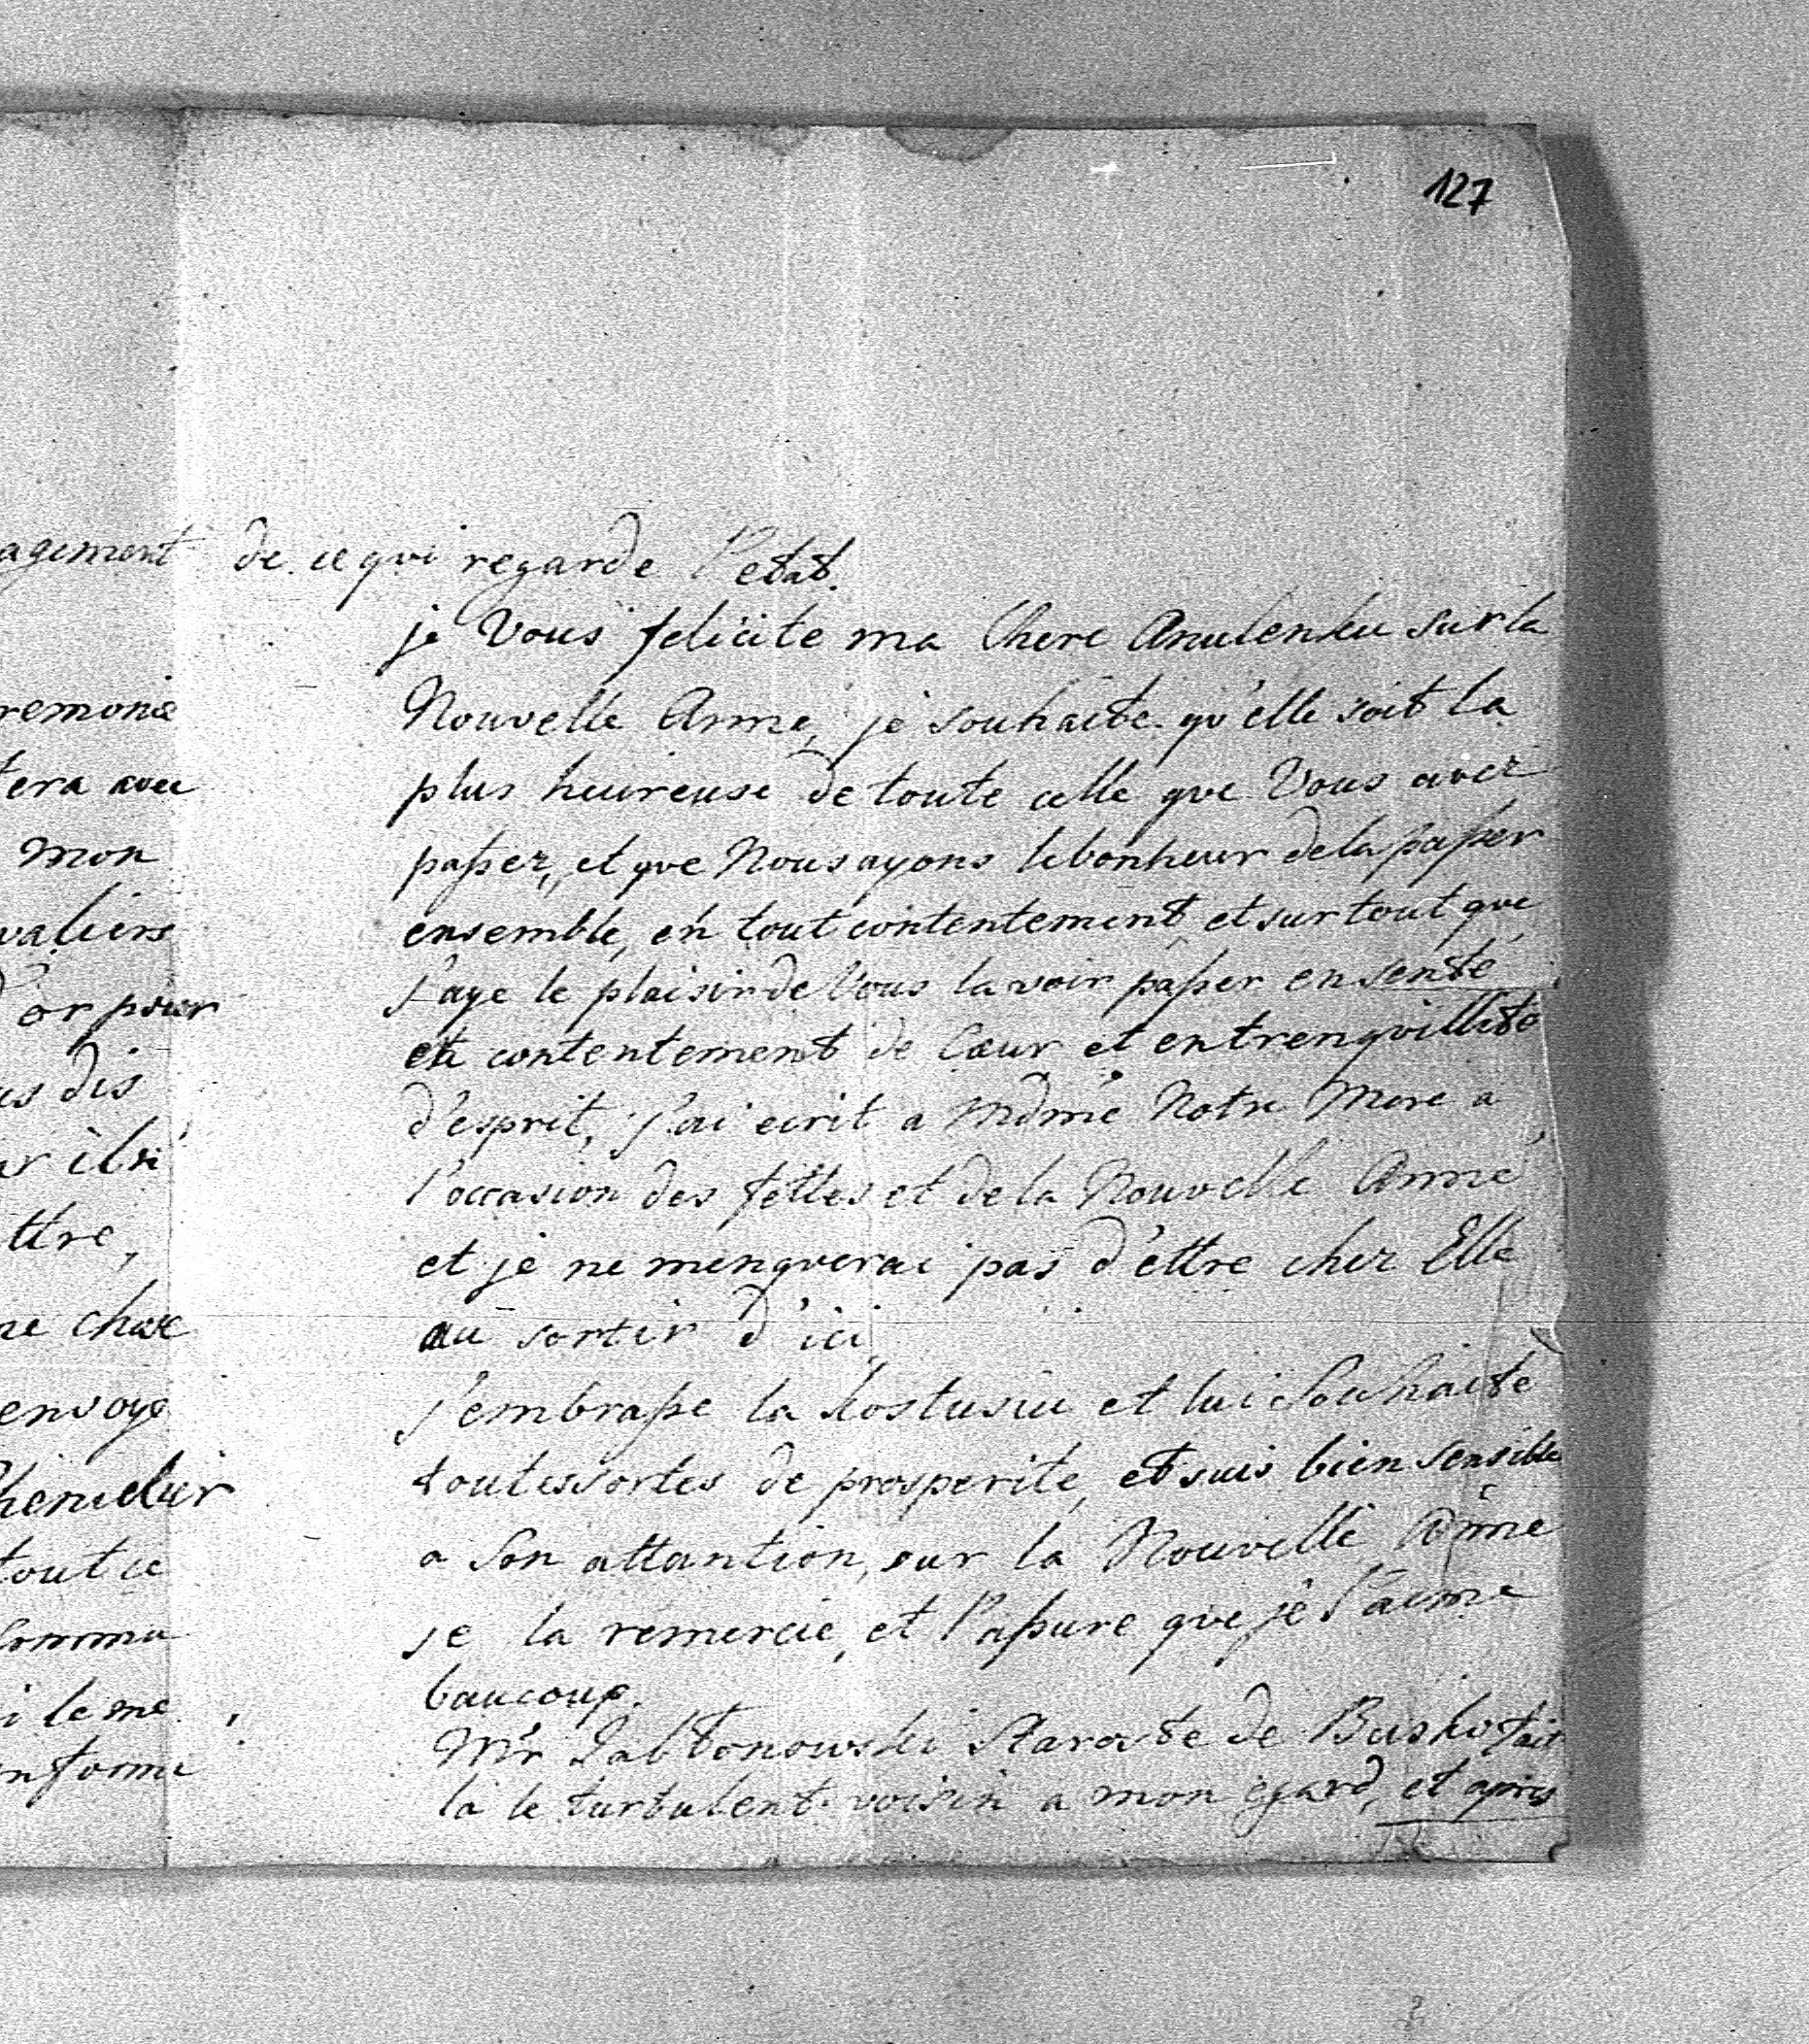 127
agement
remonie
tera avec
mon
valiers
d'or pour
us dis
ar il se
ttre,
ne chose
envoye
tout ce
comma
i le me
nforme
de ce qui regarde l'etat.
je Vous felicite ma Chere Anulenku sur la
Nouvelle Anne, je souhaite qu'elle soit la
plus heureuse de toute celle que Vous avez
passez, et que Nous ayons le bonheur de la passer
ensemble, en tout contentement, et sur tout que
j'aye le plaisir de Vous la voir passer en senté
en contentement de Cœur et en trenquillité
d'esprit, j'ai ecrit a Mdme Notre Mere a
l'occasion des fettes et de la Nouvelle Anné
et je ne menquerai pas d'ettre chez Elle
au sortir d'ici
j'embrasse la Kostusiu et lui Souhaite
toutes sortes de prosperite, et suis bien sensible
a Son attantion, sur la Nouvelle Anné
je la remercie, et l'assure que je l'aime
baucoup.
Mr Jabłonowski Staroste de Busko fait
là le turbulent voisin a mon egard, et apres